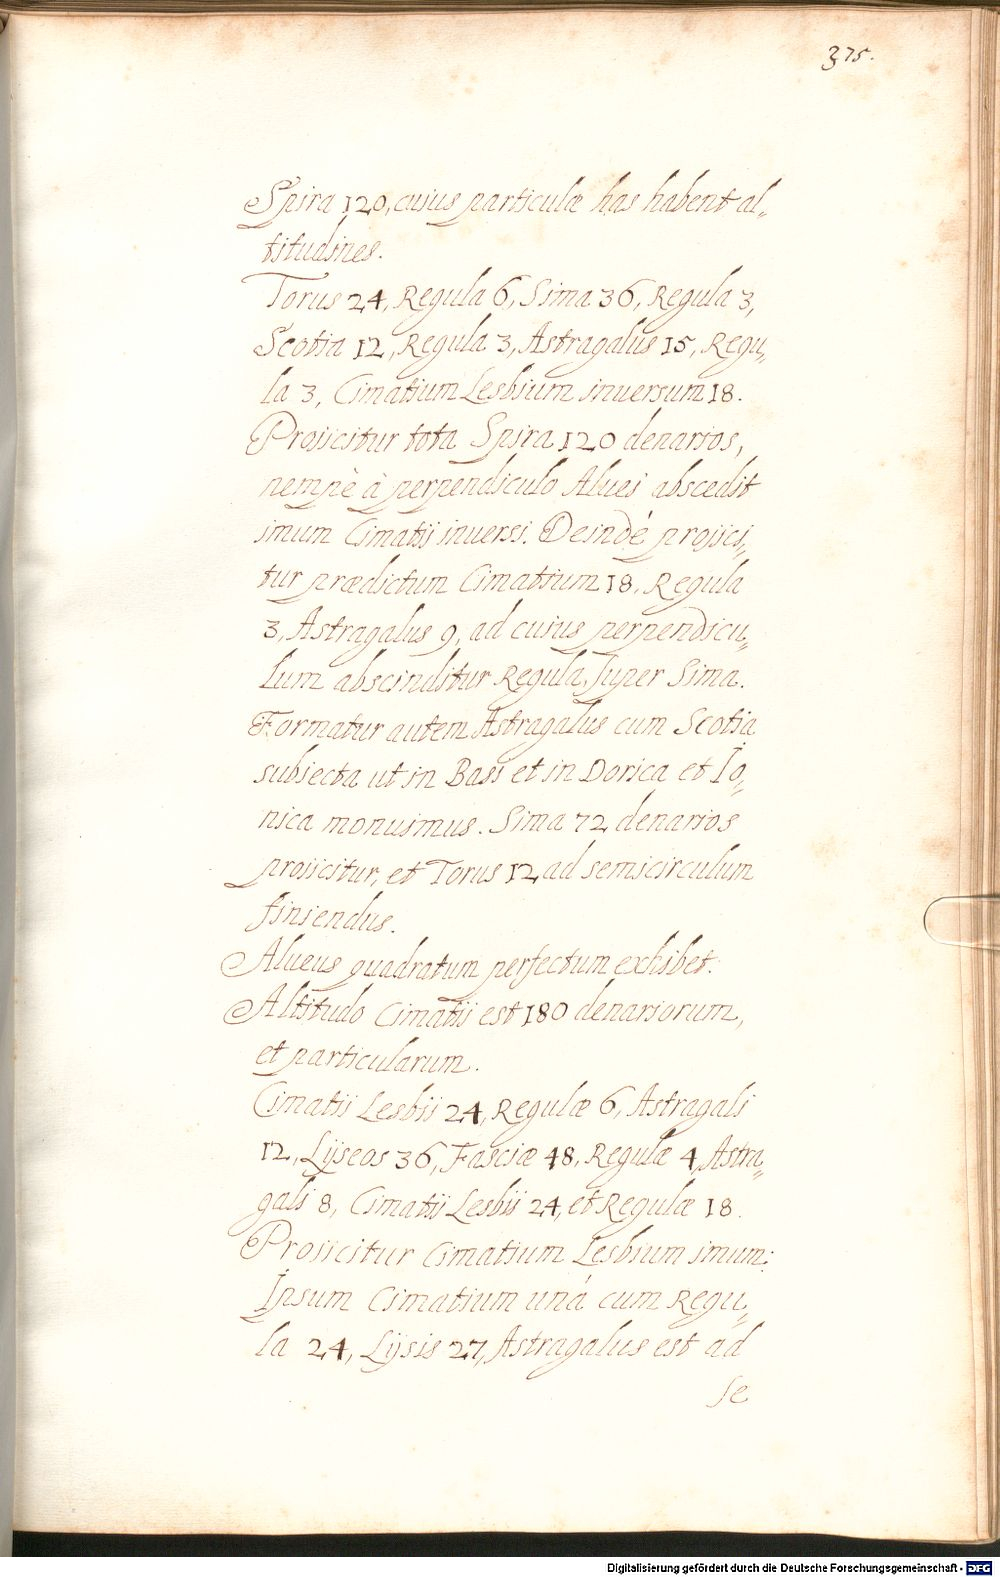 375.
Spira 120, cuius particulæ has habent al„
titudines.
Torus 24, Regula 6, Sima 36, Regula 3,
Scotia 12, Regula 3, Astragalus 15, Regu„
la 3, Cimatium Lesbium inuersum 18.
Proijcitur tota Spira 120 denarios,
nempè à perpendiculo Aluei abscedit
imum Cimatij inuersi. Deindè proijci„
tur prædictum Cimatium 18, Regula
3, Astragalus 9, ad cuius perpendicu„
lum abscinditur Regula, super Sima.
Formatur autem Astragalus cum Scotia
subiecta ut in Basi et in Dorica et Io„
nica monuimus. Sima 72 denarios
proijcitur, et Torus 12 ad semicirculum
finiendus.
Alueus quadratum perfectum exhibet.
Altitudo Cimatij est 180 denariorum,
et particularum.
Cimatij Lesbij 24, Regulæ 6, Astragali
12, Lijseos 36, Fasciæ 48, Regulæ 4, Astra„
gali 8, Cimatij Lesbij 24, et Regulæ 18.
Proijcitur Cimatium Lesbium imum:
Ipsum Cimatium unà cum Regu„
la 24, Lijsis 27, Astragalus est ad
se
Digitalisierung gefördert durch die Deutsche Forschungsgemeinschaft - DFG